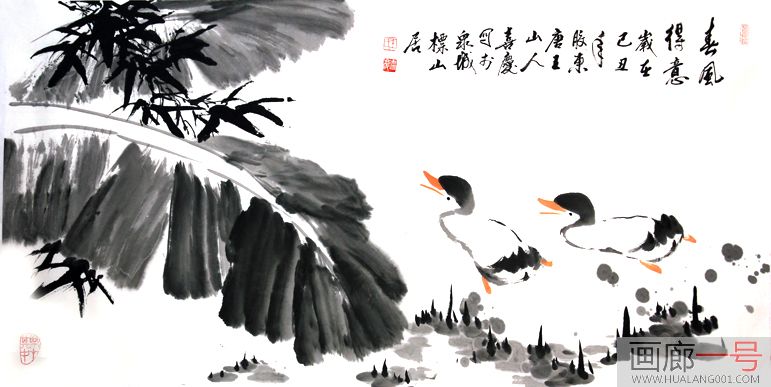 春風
得意
歲在
己丑
年
殷東
唐王
山人
喜慶
寫於
泉城
標山
居
画廊一号
WWW.HUALANG001.COM